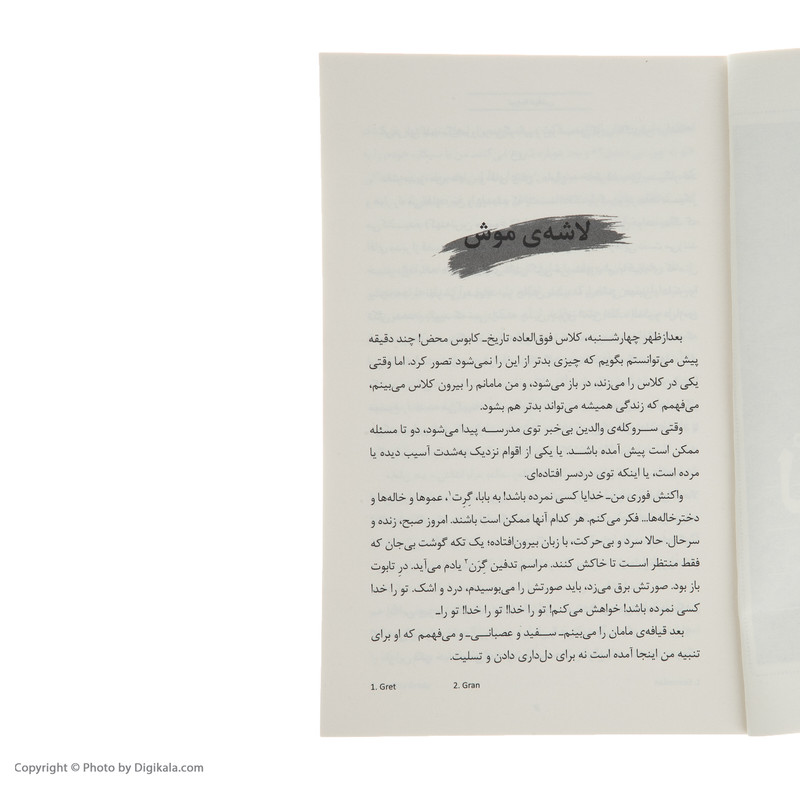 لاشه‌ی موش
بعدازظهر چهارشنبه، کلاس فوق‌العاده تاریخ‌ـ کابوس محض! چند دقیقه
پیش می‌توانستم بگویم که چیزی بدتر از این را نمی‌شود تصور کرد. اما وقتی
یکی در کلاس را می‌زند، در باز می‌شود، و من مامانم را بیرون کلاس می‌بینم،
می‌فهمم که زندگی همیشه می‌تواند بدتر هم بشود.
وقتی سروکله‌ی والدین بی‌خبر توی مدرسه پیدا می‌شود، دو تا مسئله
ممکن است پیش آمده باشد. یا یکی از اقوام نزدیک به‌شدت آسیب دیده یا
مرده است، یا اینکه توی دردسر افتاده‌ای.
واکنش فوری من‌ـ خدایا کسی نمرده باشد! به بابا، گِرِت۱، عموها و خاله‌ها و
دخترخاله‌ها... فکر می‌کنم. هر کدام آنها ممکن است باشند. امروز صبح، زنده و
سرحال. حالا سرد و بی‌حرکت، با زبان بیرون‌افتاده؛ یک تکه گوشت بی‌جان که
فقط منتظر است تا خاکش کنند. مراسم تدفین گِرَن۲ یادم می‌آید. درِ تابوت
باز بود. صورتش برق می‌زد، باید صورتش را می‌بوسیدم، درد و اشک. تو را خدا
کسی نمرده باشد! خواهش می‌کنم! تو را خدا! تو را خدا! تو راـ
بعد قیافه‌ی مامان را می‌بینم‌ـ سفید و عصبانی‌ـ و می‌فهمم که او برای
تنبیه من اینجا آمده است نه برای دل‌داری دادن و تسلیت.
1. Gret 2. Gran
Copyright © Photo by Digikala.com